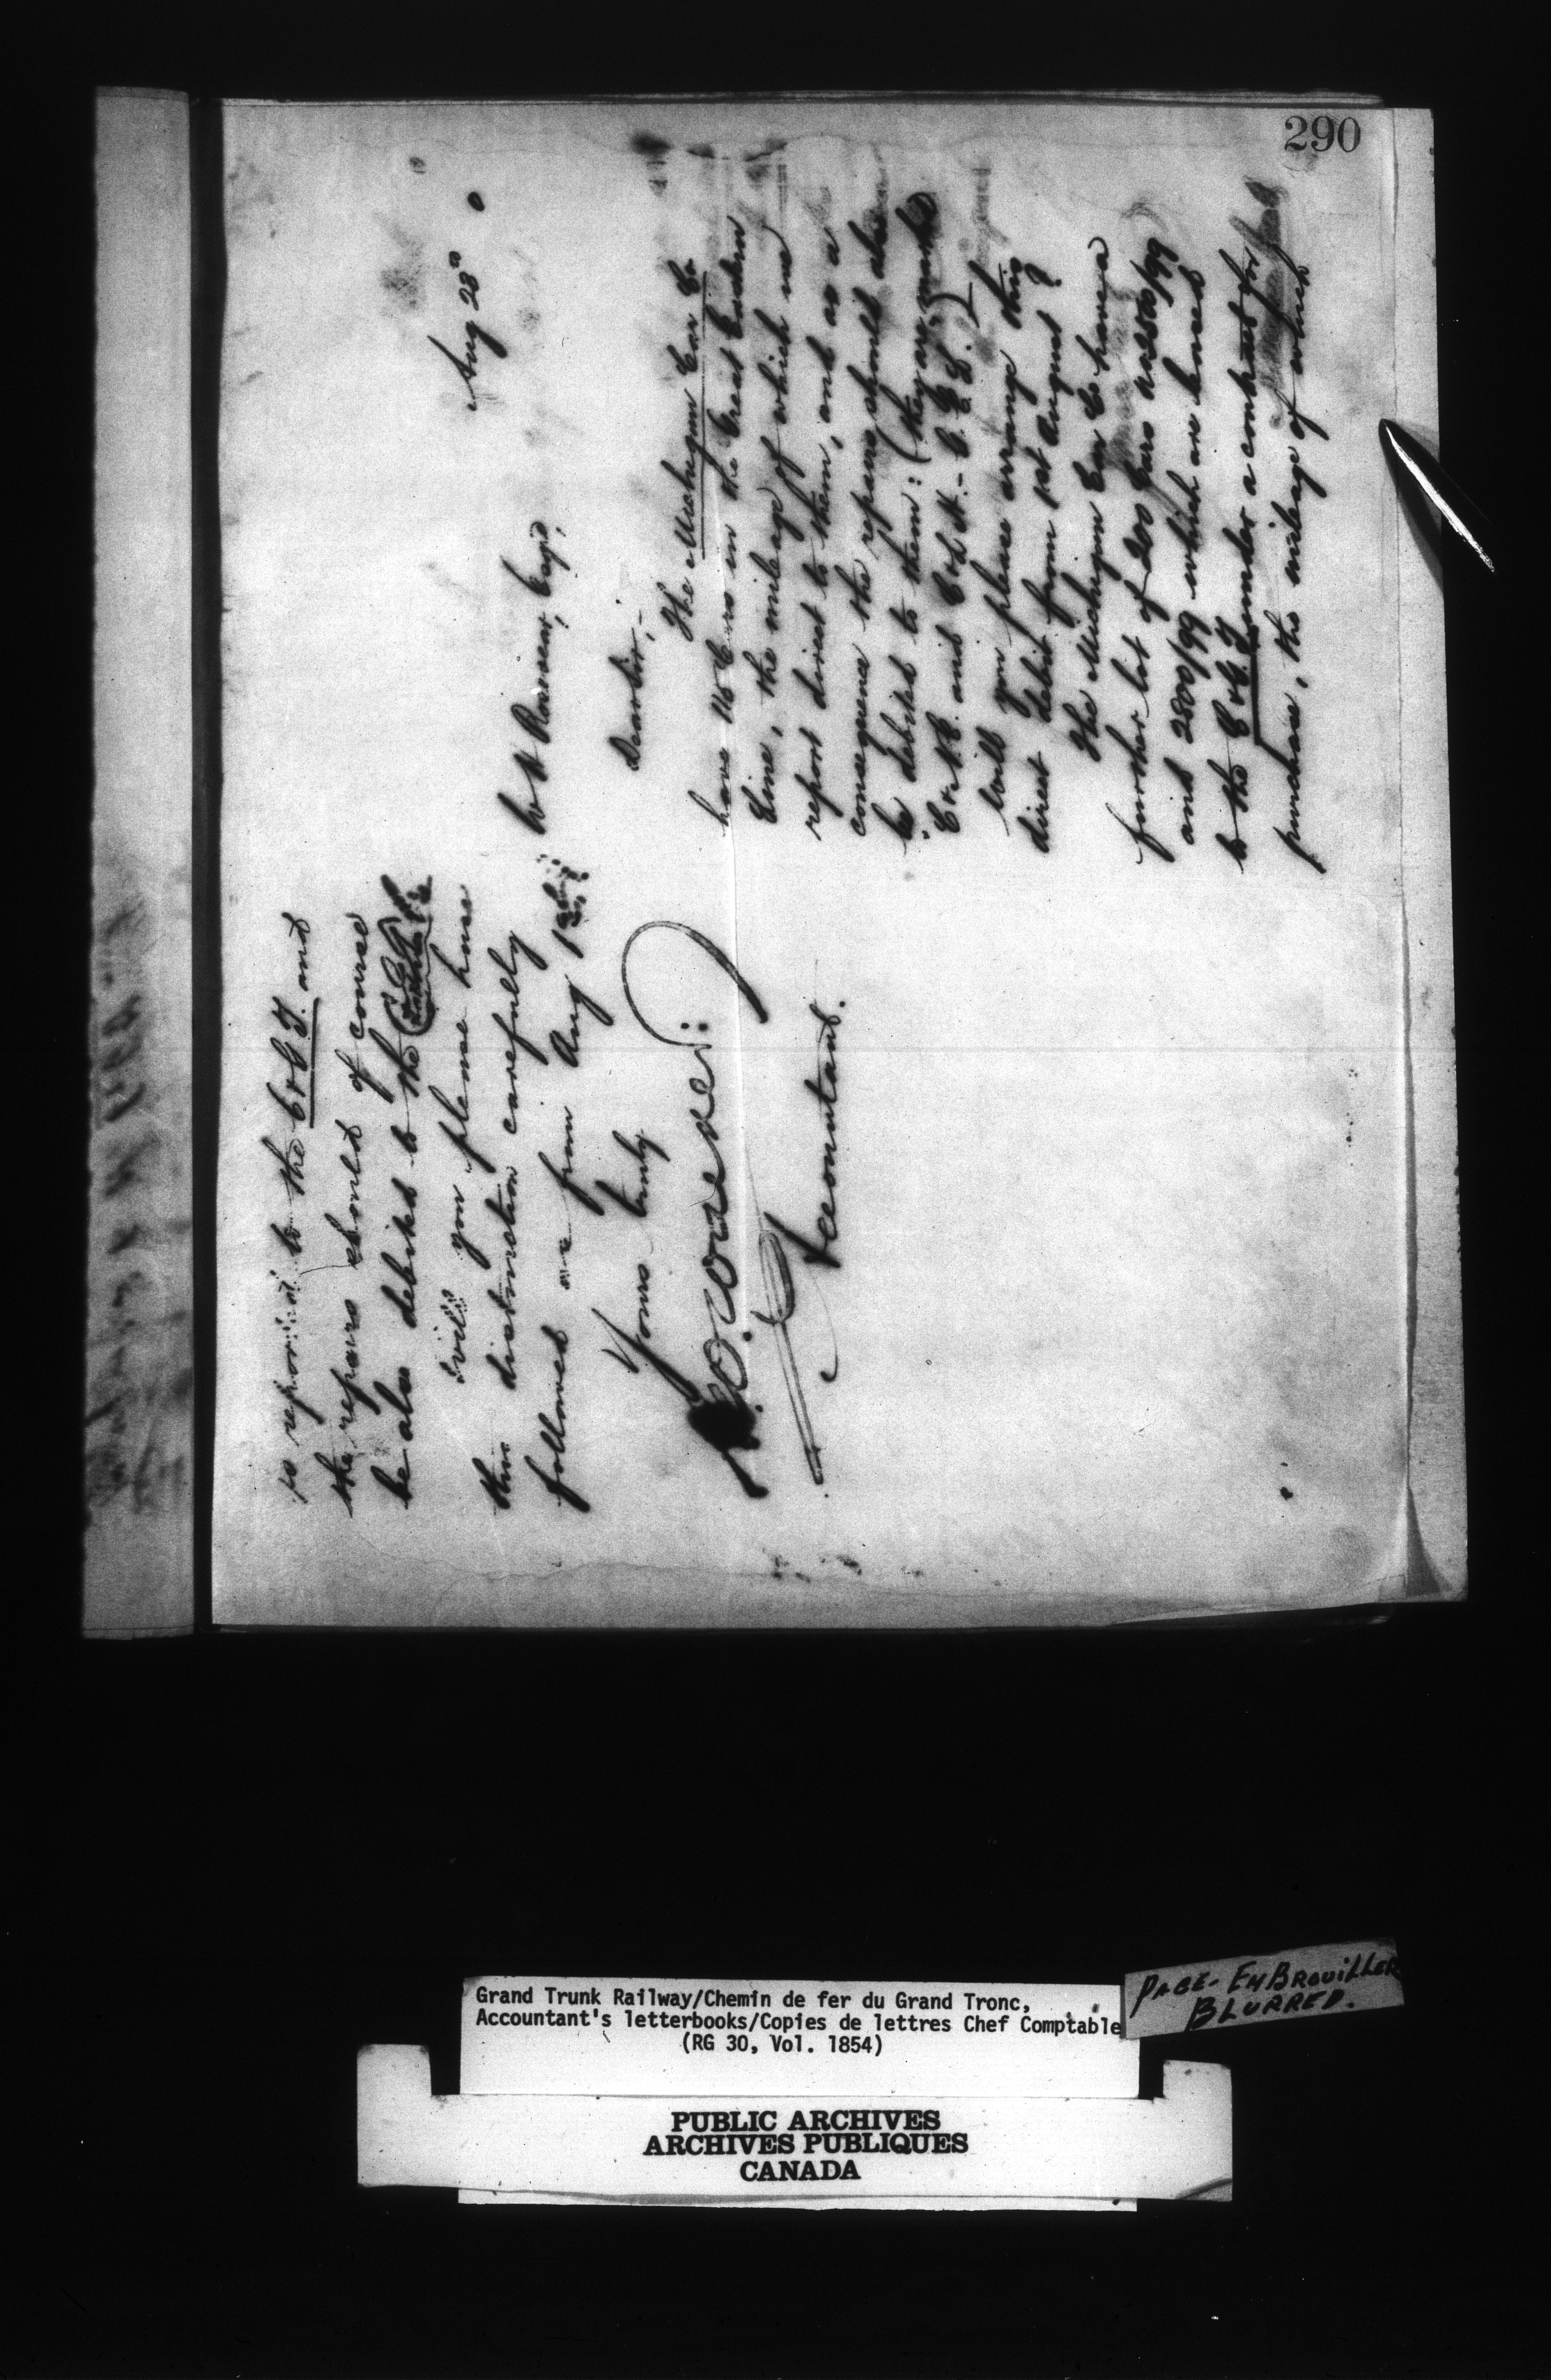 290
Aug 28
W Robinson, Esqr,
Dear Sir,-
The Michigan Car Co
have 116 Cars in the Great Eastern
Line, the mileage of which we
report direct to them, and as a
consequence the repairs should also
be debited to them: (they are marked
will you please arrange this
direct debit from 1st August
The Michigan Car Co have a
further lot of 200 Cars
and 2800/99 which are leased
to the C & G. T. under a contract for
purchase, the mileage of which
is reported to the C & G T. and
the repairs should of course
be also debited to the
Will you please have
this distinction carefully
followed as from Aug 1st
Yours truly
Accountant.
Grand Trunk Railway/Chemin de fer du Grand Tronc,
Accountant's letterbooks/Copies de lettres Chef Comptable
(RG 30, Vol. 1854)
PAGE- EMBROUILLER
BLURRED.
PUBLIC ARCHIVES
ARCHIVES PUBLIQUES
CANADA